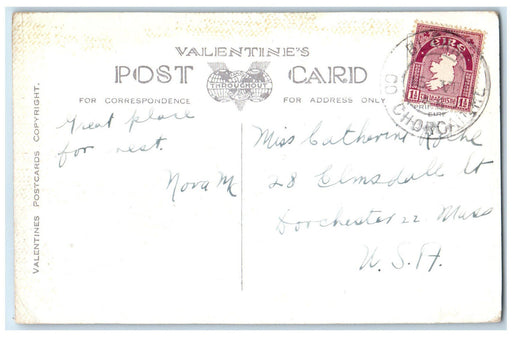 VALENTINE'S
POST CARD
THROUGHOUT
FOR CORRESPONDENCE
FOR ADDRESS ONLY
VALENTINES POSTCARDS COPYRIGHT.
Great place
for rest.
Nora Mc
Miss Catherine Roche
28 Elmsdale St
Dorchester 22 Mass
U.S.A.
EIRE
1½ 1½
CHORCA